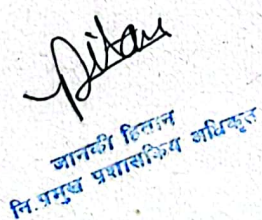 जानकी हितान
नि.प्रमुख प्रशासकिय अधिकृत